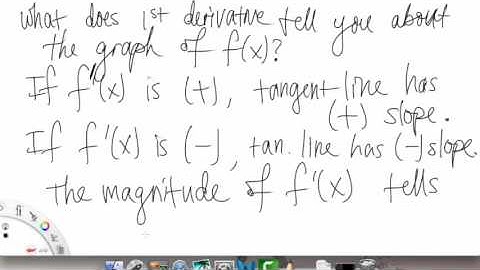 what does 1st derivative tell you about
the graph of f(x)?
If f'(x) is (+), tangent line has
(+) slope.
If f'(x) is (-), tan. line has (-) slope.
the magnitude of f'(x) tells